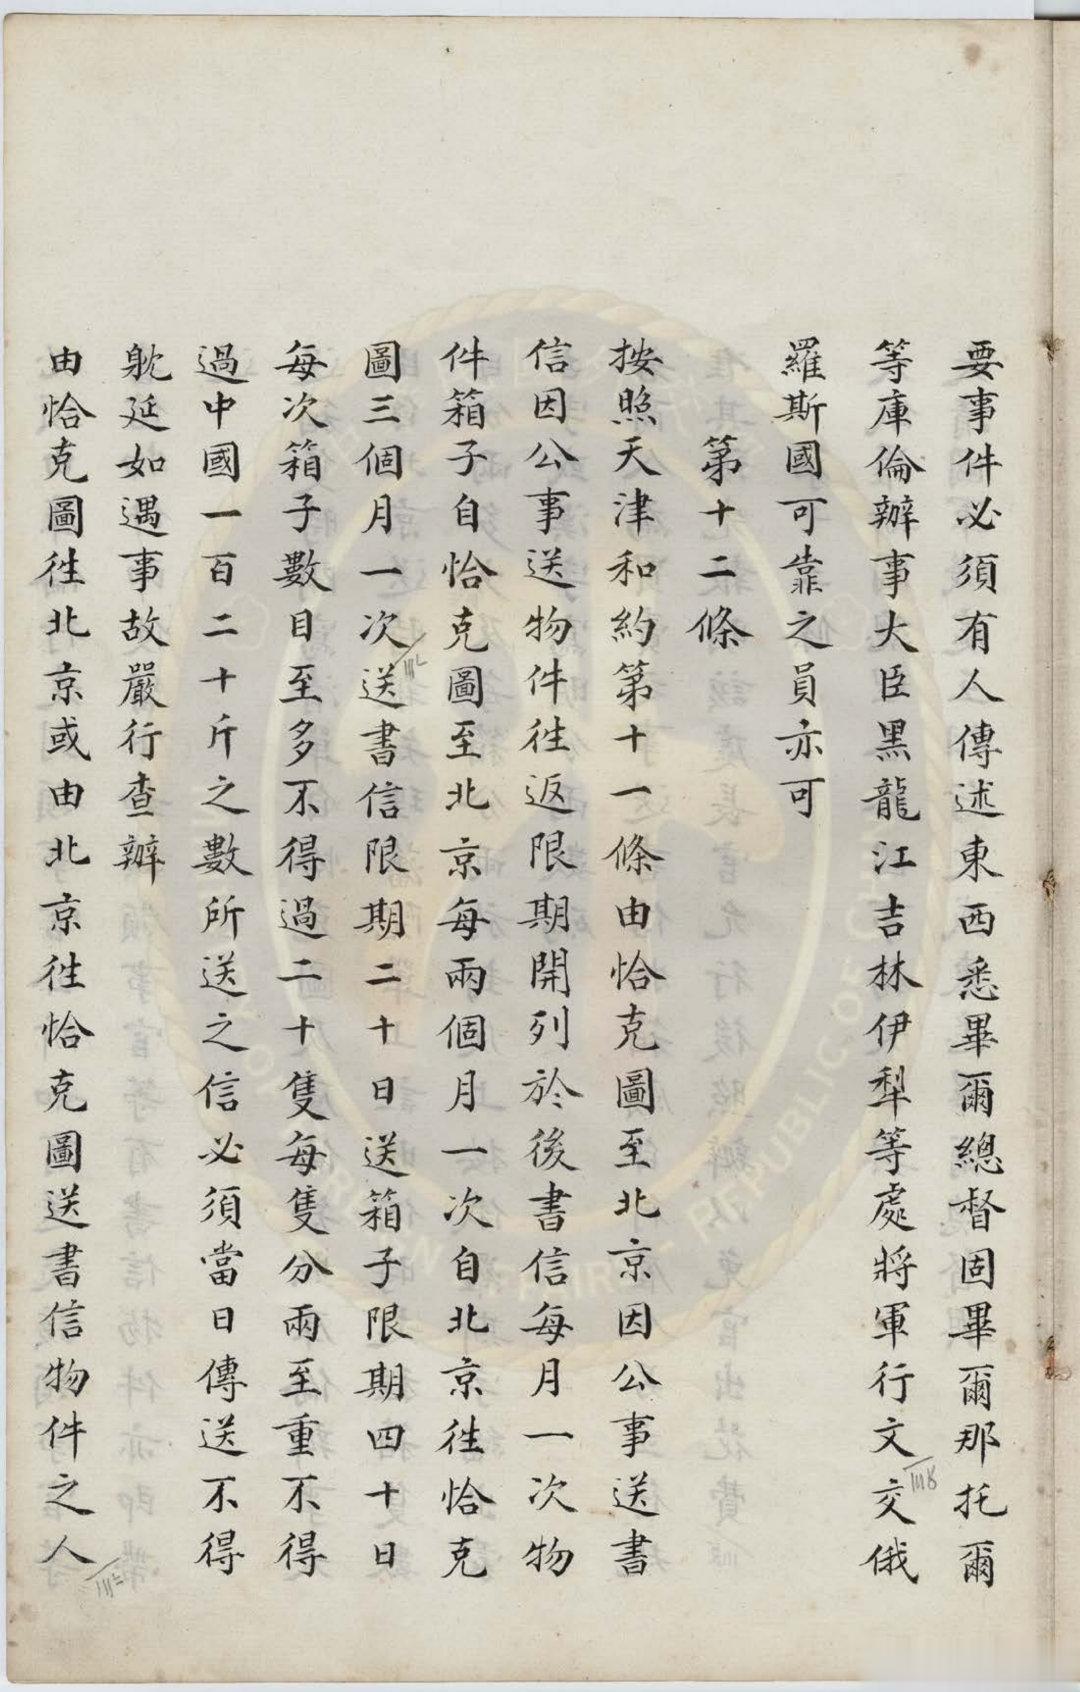 要事件必須有人傳述東西悉畢爾總督固畢爾那托爾
等庫倫辦事大臣黑龍江吉林伊犁等處將軍行文交俄
羅斯國可靠之員亦可
第十二條
按照天津和約第十一條由恰克圖至北京因公事送書
信因公事送物件徃返限期開列於後書信每月一次物
件箱子自恰克圖至北京每兩個月一次自北京徃恰克
圖三個月一次送書信限期二十日送箱子限期四十日
每次箱子數目至多不得過二十隻每隻分兩至重不得
過中國一百二十斤之數所送之信必須當日傳送不得
躭延如遇事故嚴行查辦
由恰克圖徃北京或由北京徃恰克圖送書信物件之人